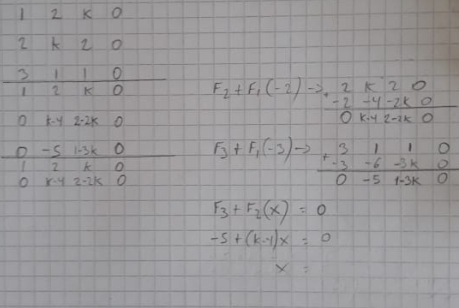 1 2 k 0
2 k 2 0
3 1 1 0
1 2 k 0
0 k-4 2-2k 0
0 -5 1-3k 0
1 2 k 0
0 k-4 2-2k 0
F2 + F1(-2) -> + 2 k 2 0
-2 -4 -2k 0
0 k-4 2-2k 0
F3 + F1(-3) -> + 3 1 1 0
-3 -6 -3k 0
0 -5 1-3k 0
F3 + F2(x) = 0
-5 + (k-4)x = 0
x =